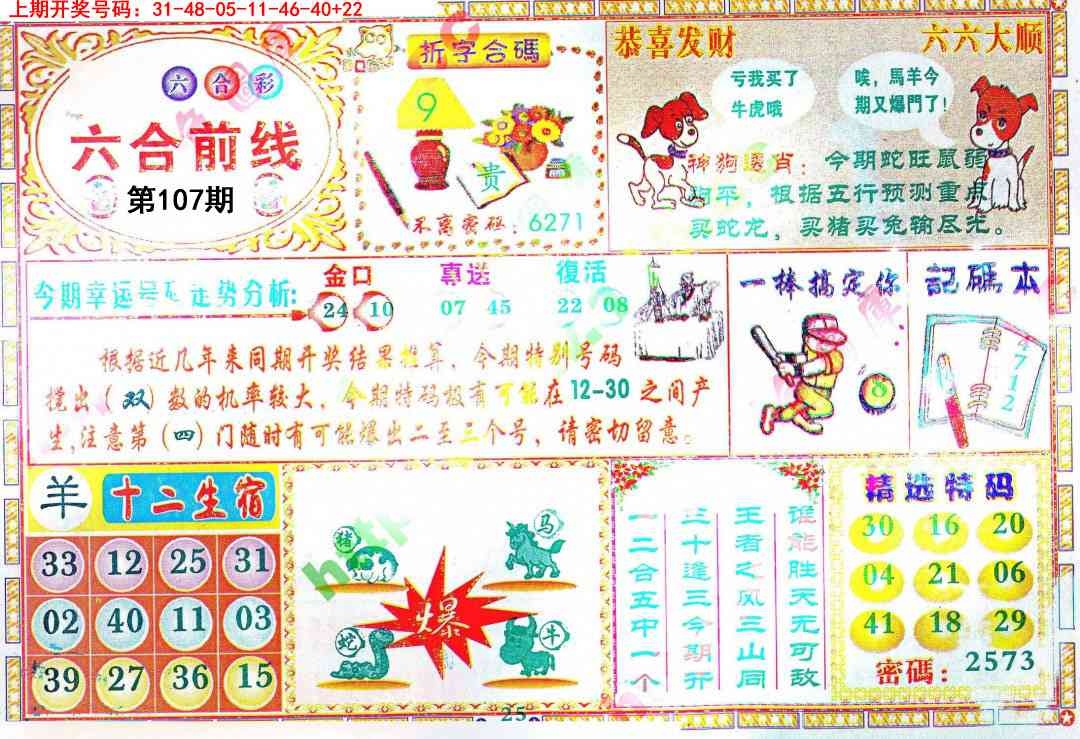 上期开奖号码：31-48-05-11-46-40+22
六合彩
六合前线
第107期
折字合碼
9
贵
不离密码：6271
恭喜发财
六六大顺
亏我买了
牛虎哦
唉，馬羊今
期又爆門了！
神狗選肖：今期蛇旺鼠頭
狗平，根据五行预测重点
买蛇龙，买猪买兔输尽光。
今期幸运号码走势分析：
金口
24 10
真送
07 45
復活
22 08
根据近几年来同期开奖结果推算，今期特别号码
搅出（双）数的机率较大，今期特码极有可能在12-30之间产
生，注意第（四）门随时有可能爆出二至三个号，请密切留意。
一棒搞定你
8
記碼本
4712
羊
十二生宿
33 12 25 31
02 40 11 03
39 27 36 15
猪
马
爆
蛇
牛
谁能胜天无可敌
王者之风三山同
三十逢三今期开
一二合五中一个
精选特码
30 16 20
04 21 06
41 18 29
密碼：2573
25